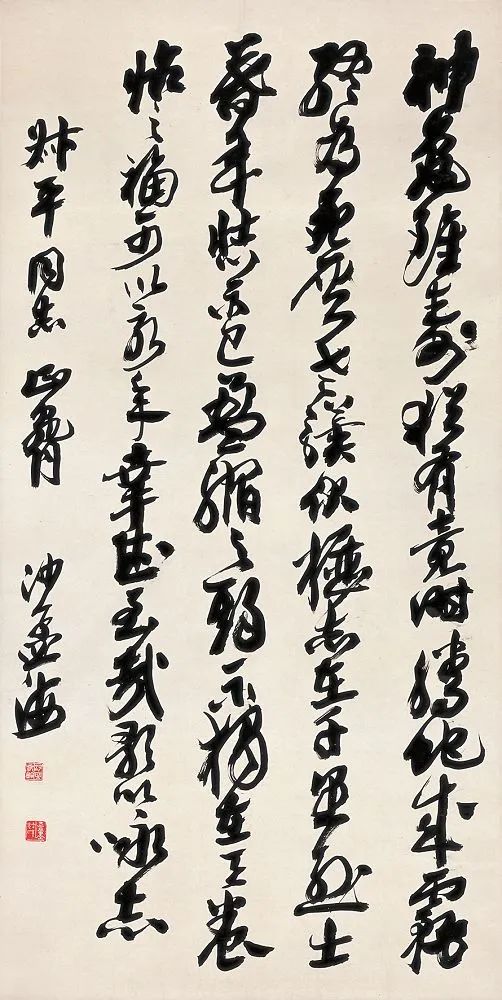 神龜雖壽猶有竟時騰蛇成霧
終為灰老驥伏櫪志在千里烈士
暮年壯心不已盈縮之期不獨在天養
怡之福可以永年幸甚至哉歌以詠志
平同志正
沙孟海